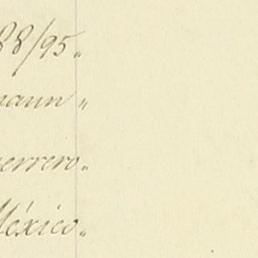 88/95„
mann „
uerrero„
México„